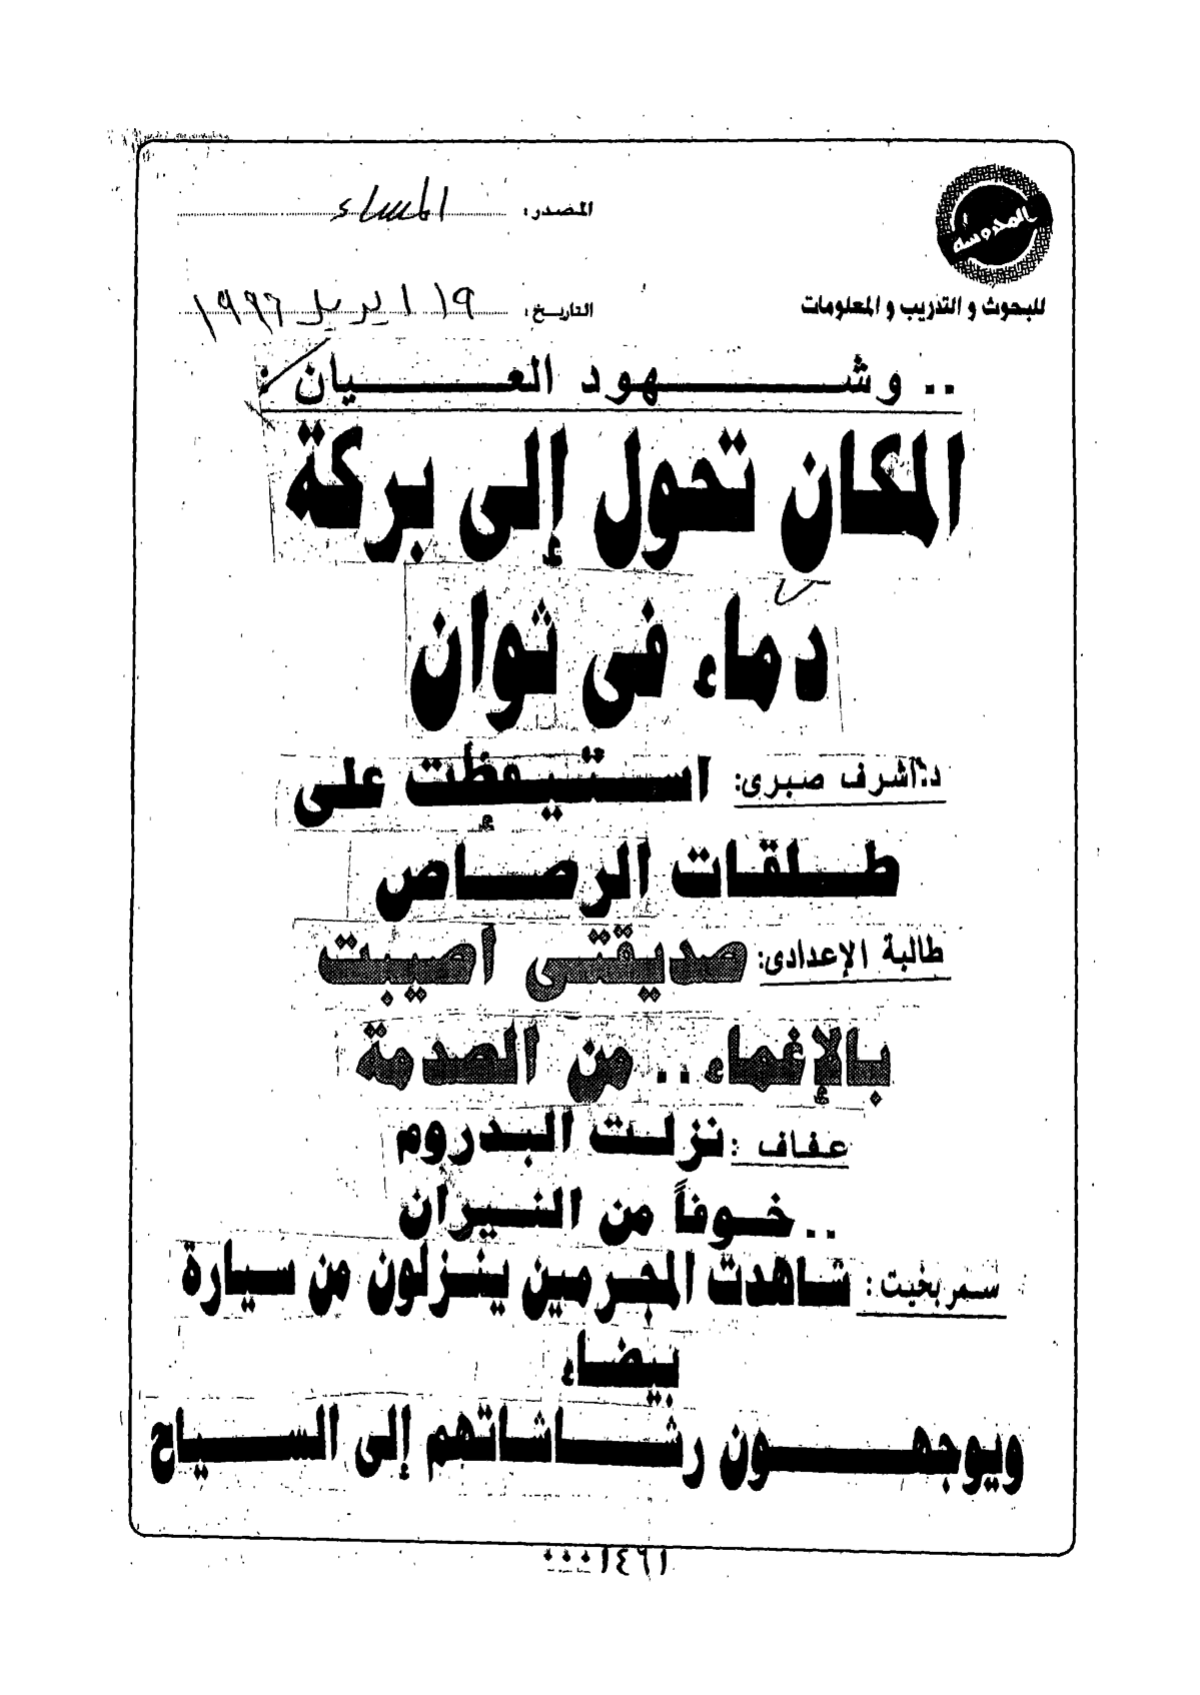 المصدر: المساء
المحروسة
التاريخ: ١٩ ابريل ١٩٩٦
للبحوث و التدريب و المعلومات
.. وشهود العيان :
المكان تحول إلى بركة
دماء فى ثوان
د. أشرف صبرى: استيقظت على
طلقات الرصاص
طالبة الإعدادى: صديقتى أصيبت
بالإغماء .. من الصدمة
عفاف : نزلت البدروم
.. خوفاً من النيران
سمر بخيت : شاهدت المجرمين ينزلون من سيارة
بيضاء
ويوجهون رشاشاتهم إلى السياح
٠٠٠١٤٦١